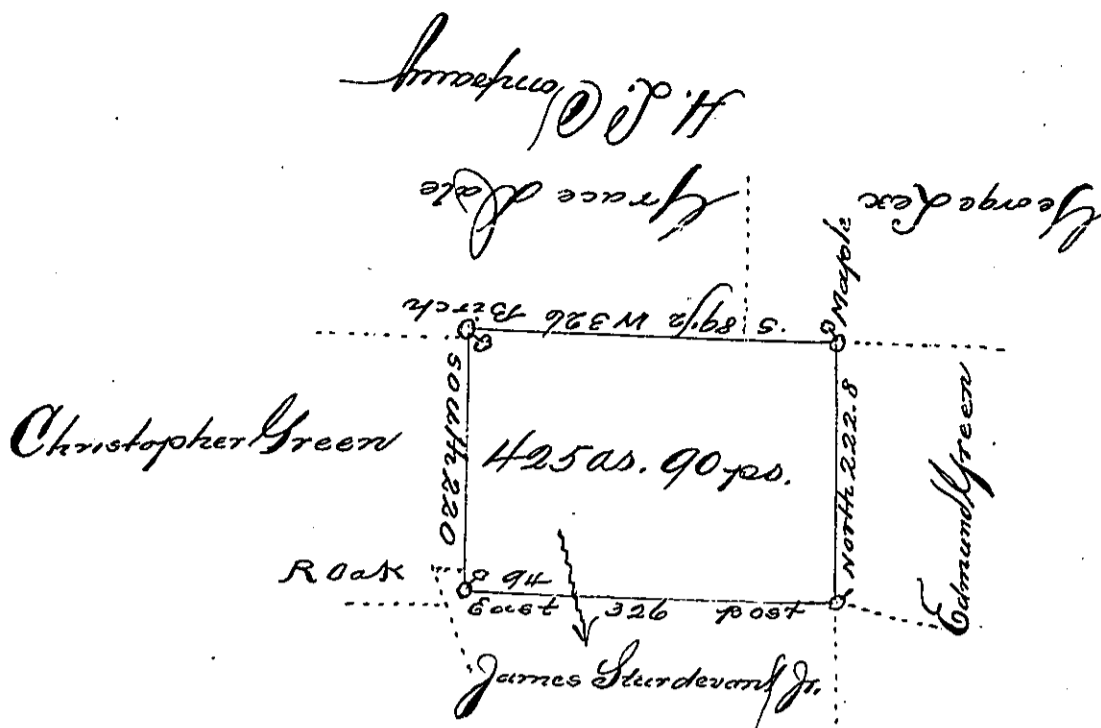 H. L. Company
Grace Dale
George Lex
Birch
S. 89 1/2 W 326
Maple
Christopher Green
South 220
425 as. 90 ps.
North 222.8
Edmund Green
R Oak
94
East 326 post
James Sturdevant Jr.